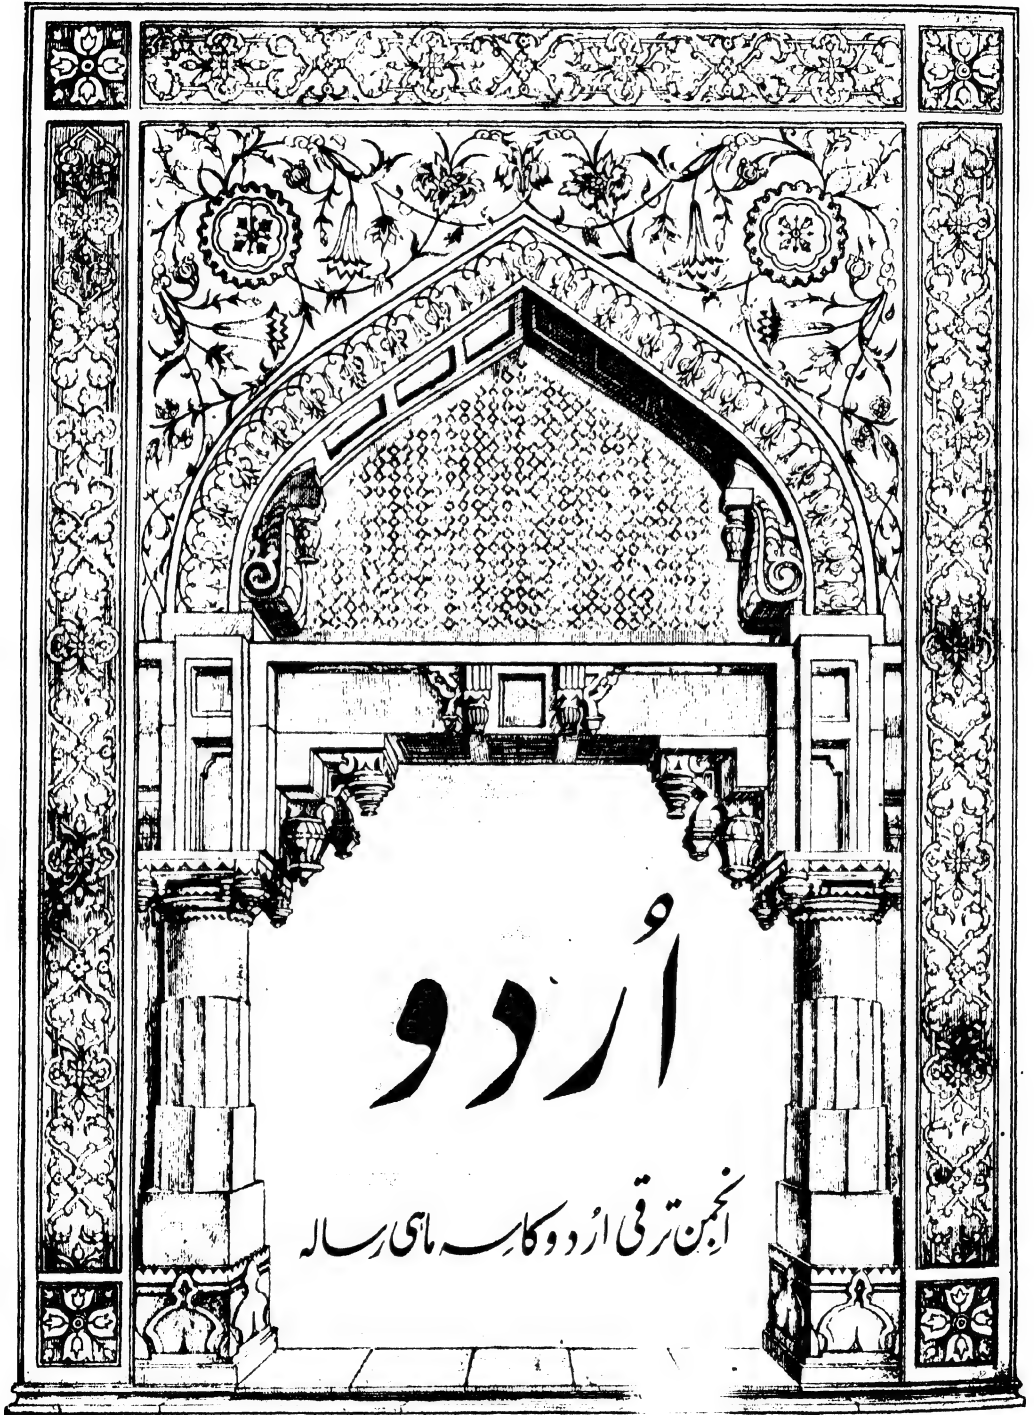 اُردو
انجمن ترقی اُردو کا سِہ ماہی رِسالہ